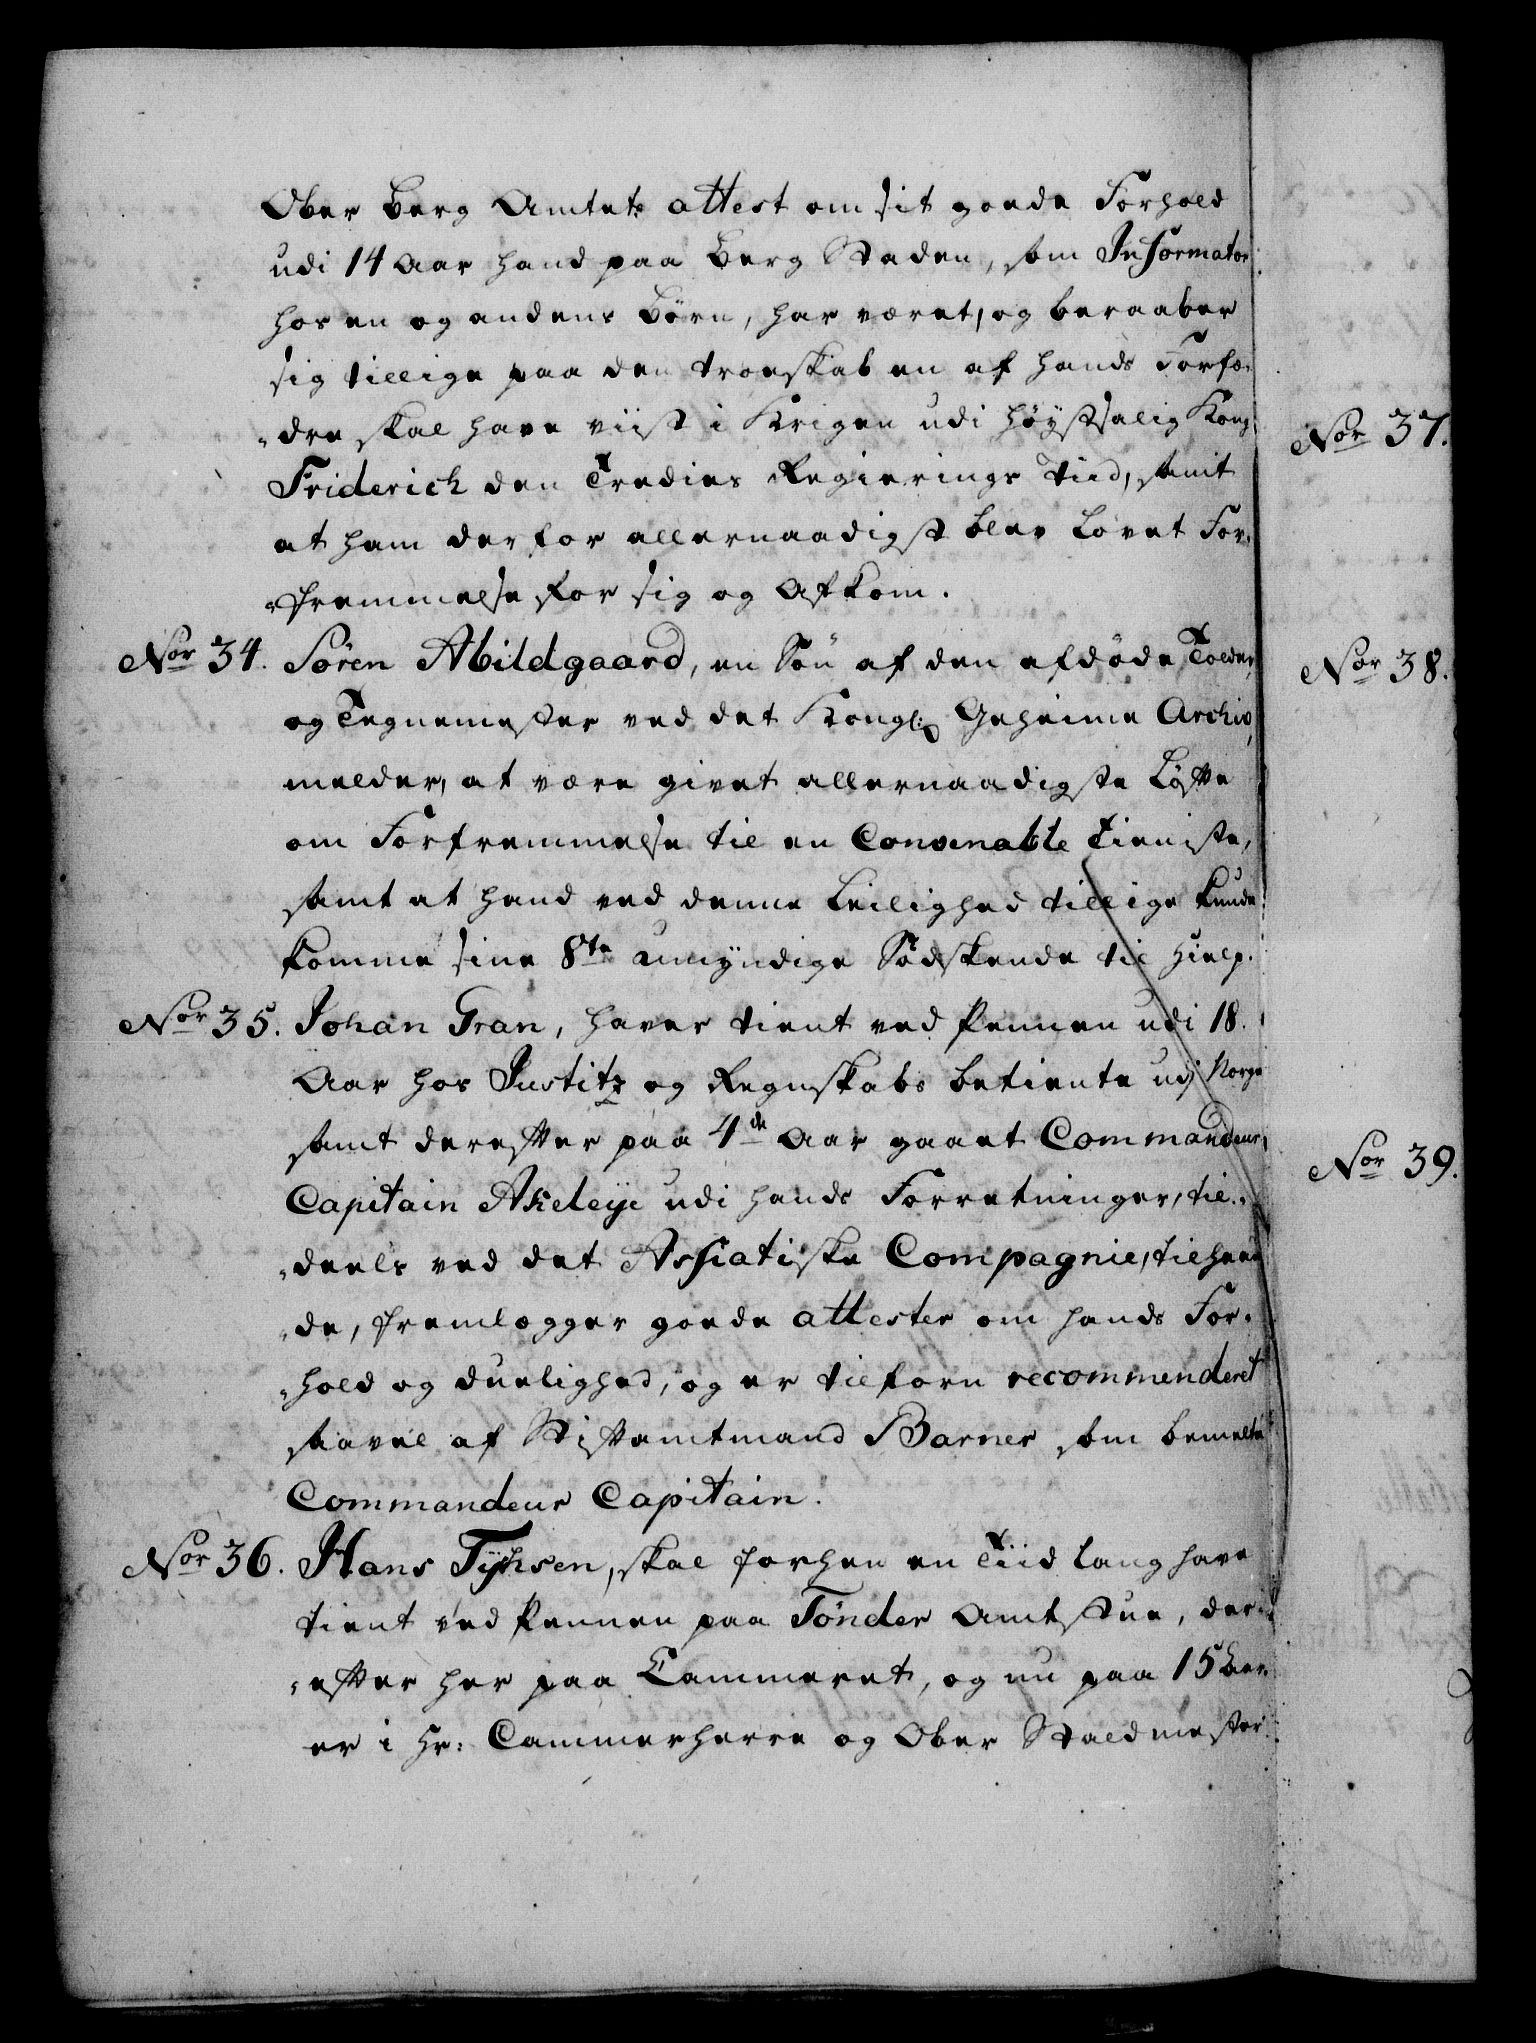 Ober Berg Amtets attest om sit goede Forhold
udi 14 Aar hand paa Berg Staden, som Informator
hos en og andens Börn, har været, og beraaber
sig tillige paa den troeskab en af hands Forfæ-
dre skal have viist i Krigen udi höystsalig Kong
Friderich den Tredies Regierings Tiid, samt
at ham derfor allernaadigst blev Lovet For-
fremmelse for sig og Afkom.
Nor 34. Sören Abildgaard, en Sön af den afdöde Tolder
og Tegnemester ved det Kongl: Geheime Archiv,
melder, at være givet allernaadigste Löfte
om Forfremmelse til en Convenable Tieniste,
samt at hand ved denne Leilighed tillige kunde
komme sine 8te umÿndige Södskende til Hielp.
Nor 35. Johan Gran, haver tient ved Pennen udi 18.
Aar hos Justitz og Regnskabs betiente udj Norge
samt derefter paa 4de Aar gaaet Commandeur
Capitain Akeleÿe udi hands Forretninger, til-
deels ved det Assiatiske Compagnie, tilhaan-
de, fremlægger goede attester om hands For-
hold og duelighed, og er tilforn recommenderet
saavel af Stiftamtmand Barner som bemelte
Commandeur Capitain.
Nor 36. Hans Tÿchsen, skal forhen en Tiid lang have
tient ved Pennen paa Tönder Amtstue, der-
efter her paa Cammeret, og nu paa 15 Aar
er i Hr: Cammerherre og Ober Staldmester
Nor 37.
Nor 38.
Nor 39.